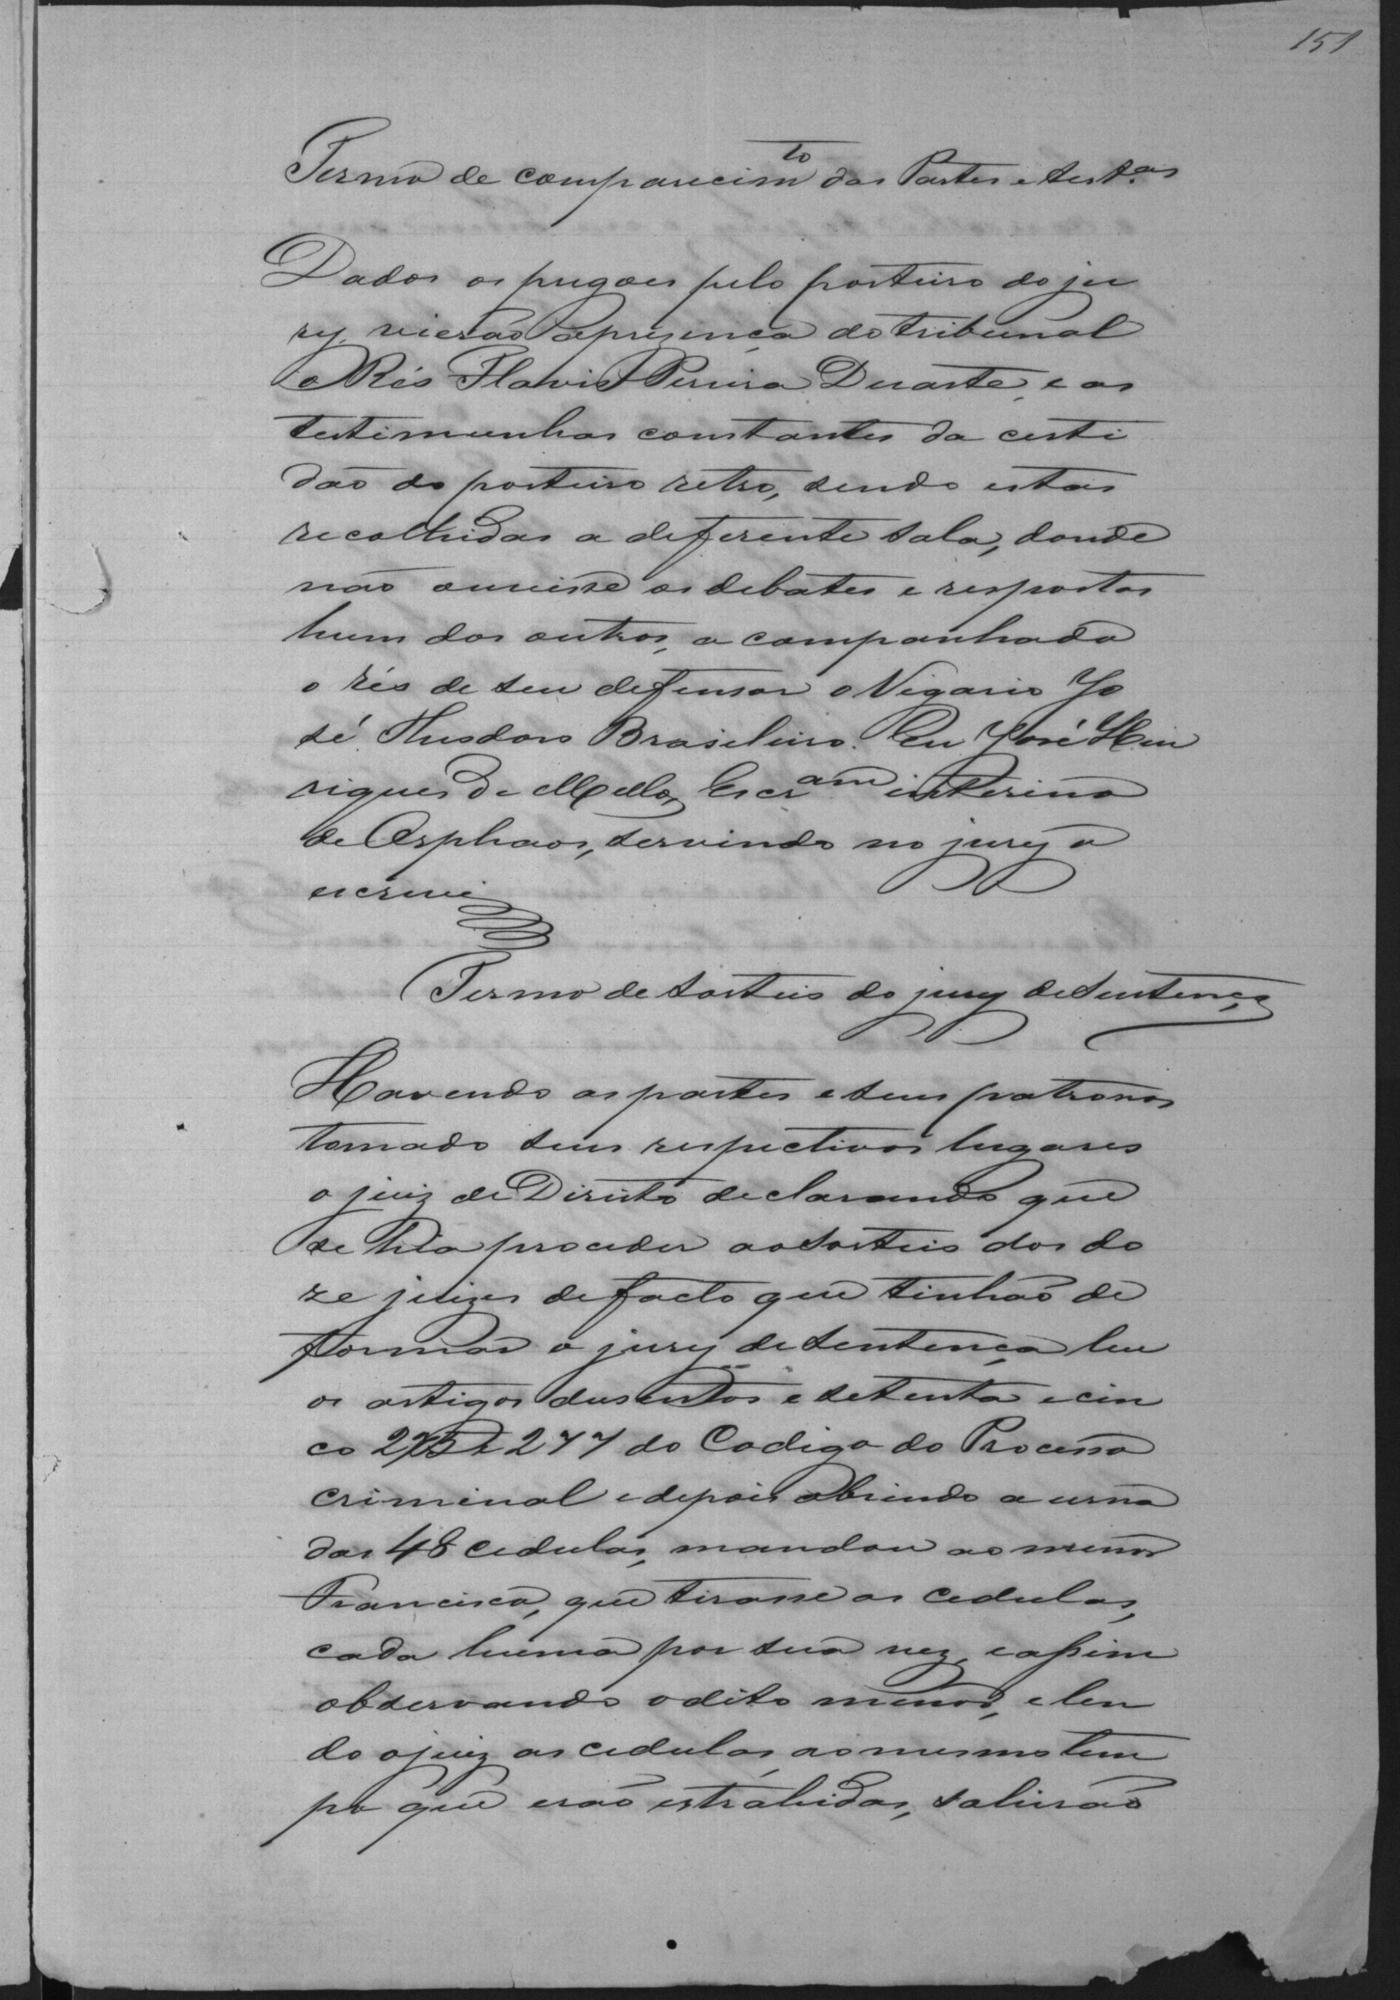 151
Termo de comparecim.to das Partes e test.as
Dados os pregoes pelo porteiro do ju
ry, vierão a presença do tribunal
o Réo Flavio Pereira Duarte, e as
testimunhas constantes da certi
dão do porteiro retro, sendo estas
recolhidas a deferente sala, donde
não ouvisse os debates e respostas
hum dos outros, acompanhado
o réo de seu defensor o Vigario Jo
sé Theodoro Brasileiro. Eu José Hen
riques de Mello, Escr.am interino
de Orphaos, servindo no jury o
escrevi
Termo de sorteio do jury de Sentença
Havendo as partes e seus patronos
tomado seus respectivos lugares
o juiz de Direito declarando que
se hia proceder ao sorteio dos do
ze juizes de facto que tinhão de
formar o jury de sentença leu
os artigos dusentos e setenta e cin
co 275 e 277 do Codigo do Processo
criminal e depois abrindo a urna
das 48 cedulas, mandou ao menor
Francisco, que tirasse as cedulas,
cada huma por sua vez, e assim
observando o dito menor, e len
do o juiz as cedulas, ao mesmo tem
po que erão estrahidas, sahirão